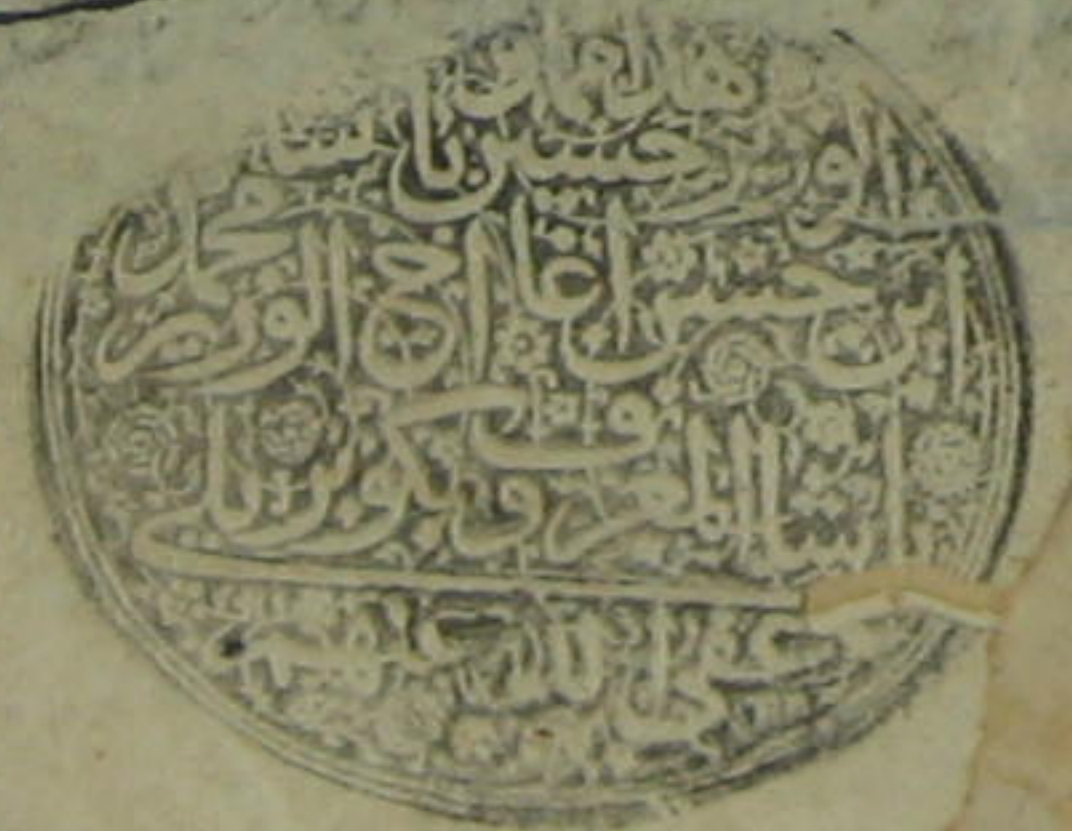 هذا ما وقف
الوزير حسين باشا
ابن حسن اغا اخ الوزير محمد
باشا المعروف بكوبريلي
عفى الله عنهم